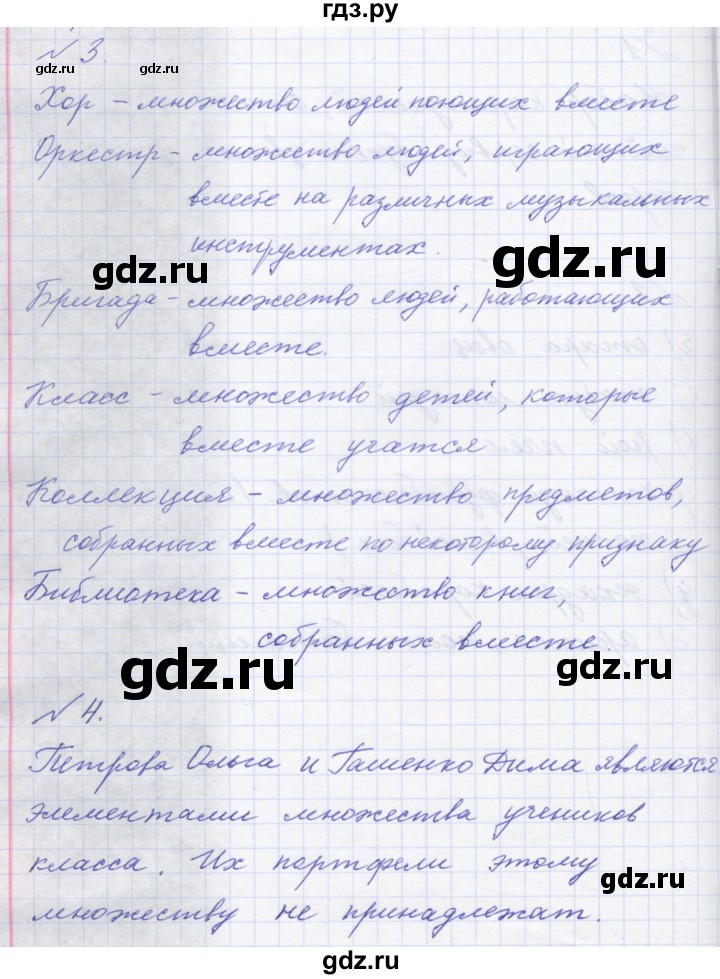 гдз.ру
№ 3.
gdz.ru
gdz.ru
gdz.ru
Хор – множество людей поющих вместе
Оркестр – множество людей, играющих
вместе на различных музыкальных
инструментах.
gdz.ru
gdz.ru
Бригада – множество людей, работающих
вместе.
Класс – множество детей, которые
вместе учатся
Коллекция – множество предметов,
собранных вместе по некоторому признаку
Библиотека – множество книг,
собранных вместе.
gdz.ru
gdz.ru
№ 4.
Петрова Ольга и Гашенко Дима являются
элементами множества учеников
класса. Их портфели этому
gdz.ru
множеству не принадлежат.
gdz.ru